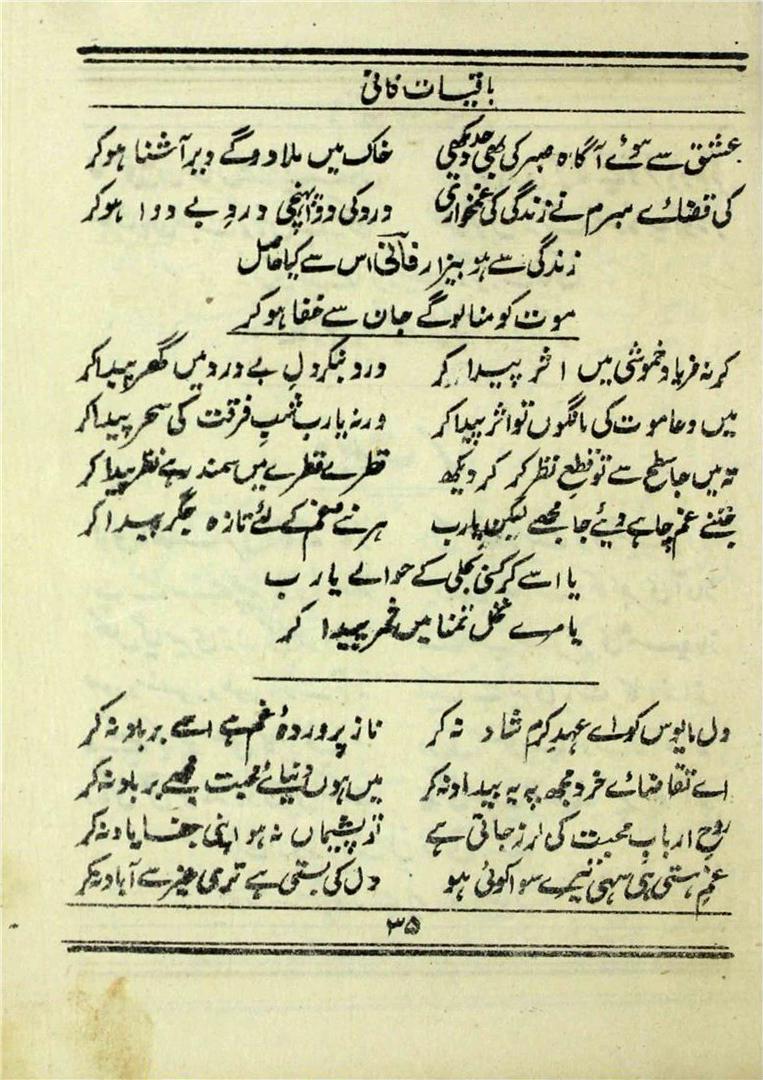 باقیات فانی
عشق سے ہوئے آگاہ صبر کی بھی حد دیکھی خاک میں ملا دوگے دیر آشنا ہوکر
کی قضائے مبرم نے زندگی کی غمخواری درد کی دوا پہنچی دردِ بے دوا ہوکر
زندگی سے ہو بیزار فانی اس سے کیا حاصل
موت کو منالوگے جان سے خفا ہوکر
کر نہ فریاد خموشی میں اثر پیدا کر درد بنکر دلِ بے درد میں گھر پیدا کر
میں دعا موت کی مانگوں تو اثر پیدا کر ورنہ یارب شبِ فرقت کی سحر پیدا کر
تہ میں جا سطح سے تو قطع نظر کر کر دیکھ قطرے قطرے میں سمندر ہے نظر پیدا کر
جتنے غم چاہے دیئے جا مجھے لیکن یارب ہر نئے غم کے لئے تازہ جگر پیدا کر
یا اسے کر کسی بجلی کے حوالے یارب
یا مرے نخل تمنا میں ثمر پیدا کر
دل مایوس کو اے عہدِ کرم شاد نہ کر ناز پروردۂ غم ہے اسے برباد نہ کر
اے تقاضائے خرد مجھ پہ یہ بیداد نہ کر میں ہوں دنیائے محبت مجھے برباد نہ کر
روح اربابِ محبت کی لرز جاتی ہے تو پشیماں نہ ہو اپنی جفا یاد نہ کر
غمِ ہستی ہی سہی تیرے سوا کوئی ہو دل کی بستی ہے تری غیر سے آباد نہ کر
۳۵